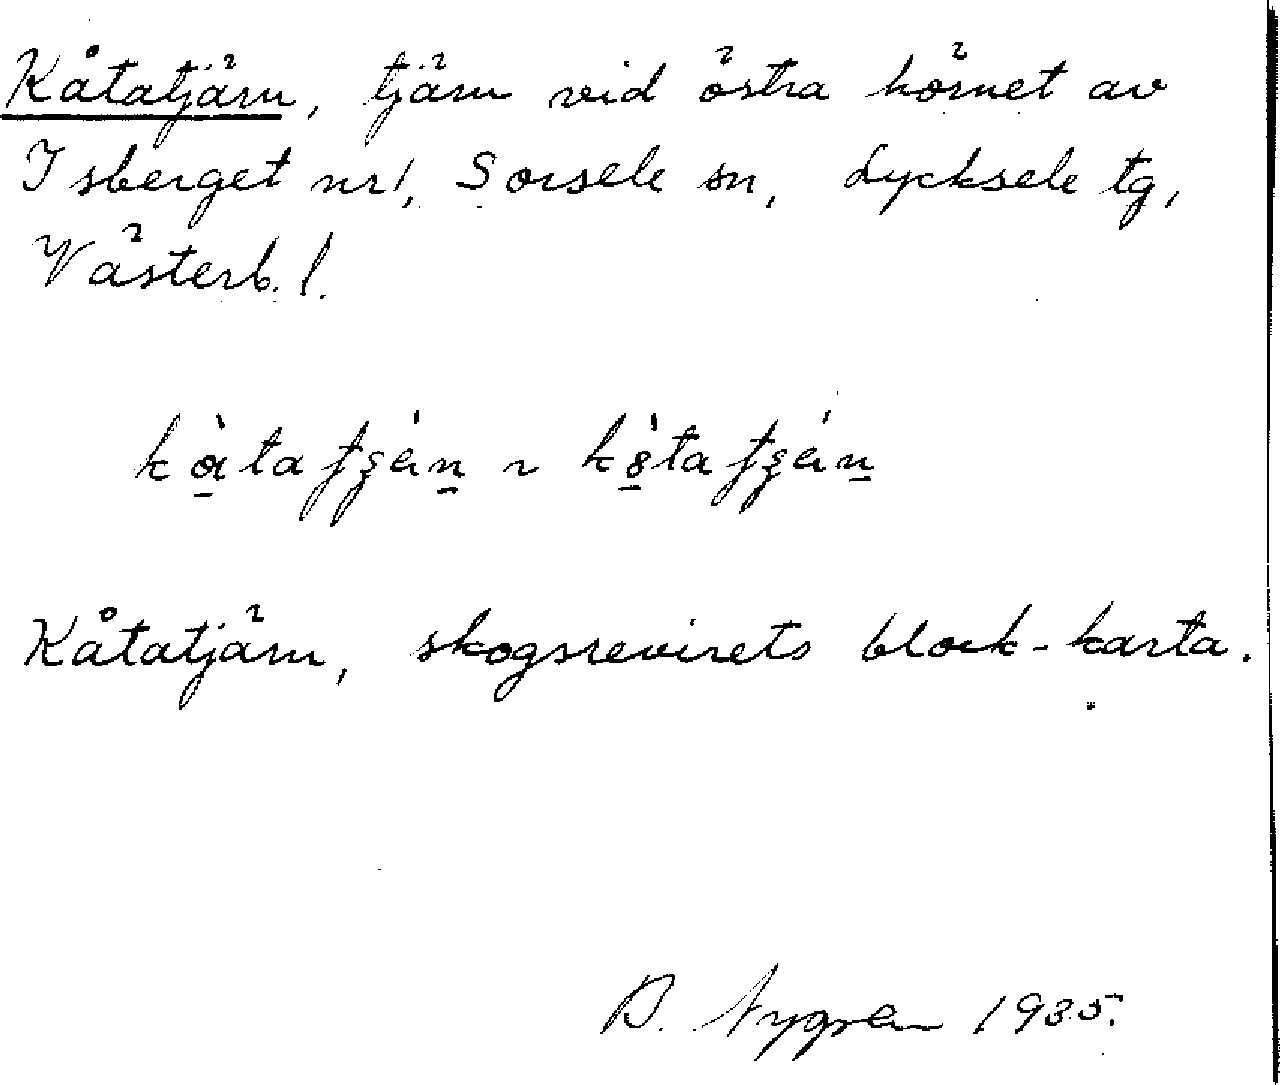 Kåtatjärn, tjärn vid östra hörnet av
Isberget nr 1, Sorsele sn, Lycksele tg,
Västerb. l.
Kåtatjärn, skogsrevirets block-karta.
Nygren 1935.